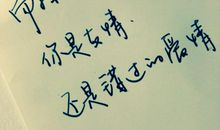 你是友情
还是错过的爱情